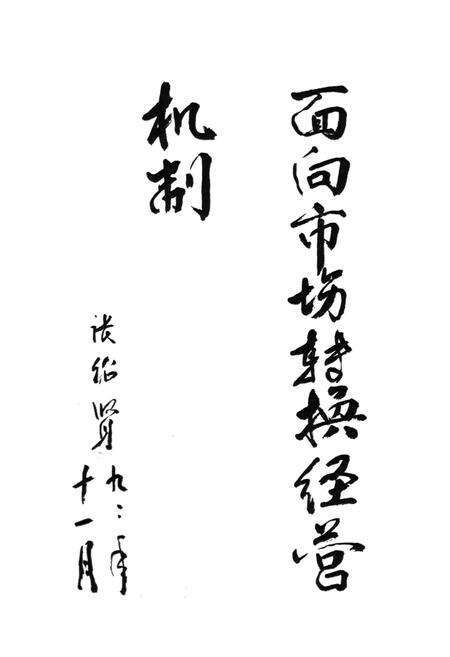 面向市场转换经营
机制
贤
九二年
十一月